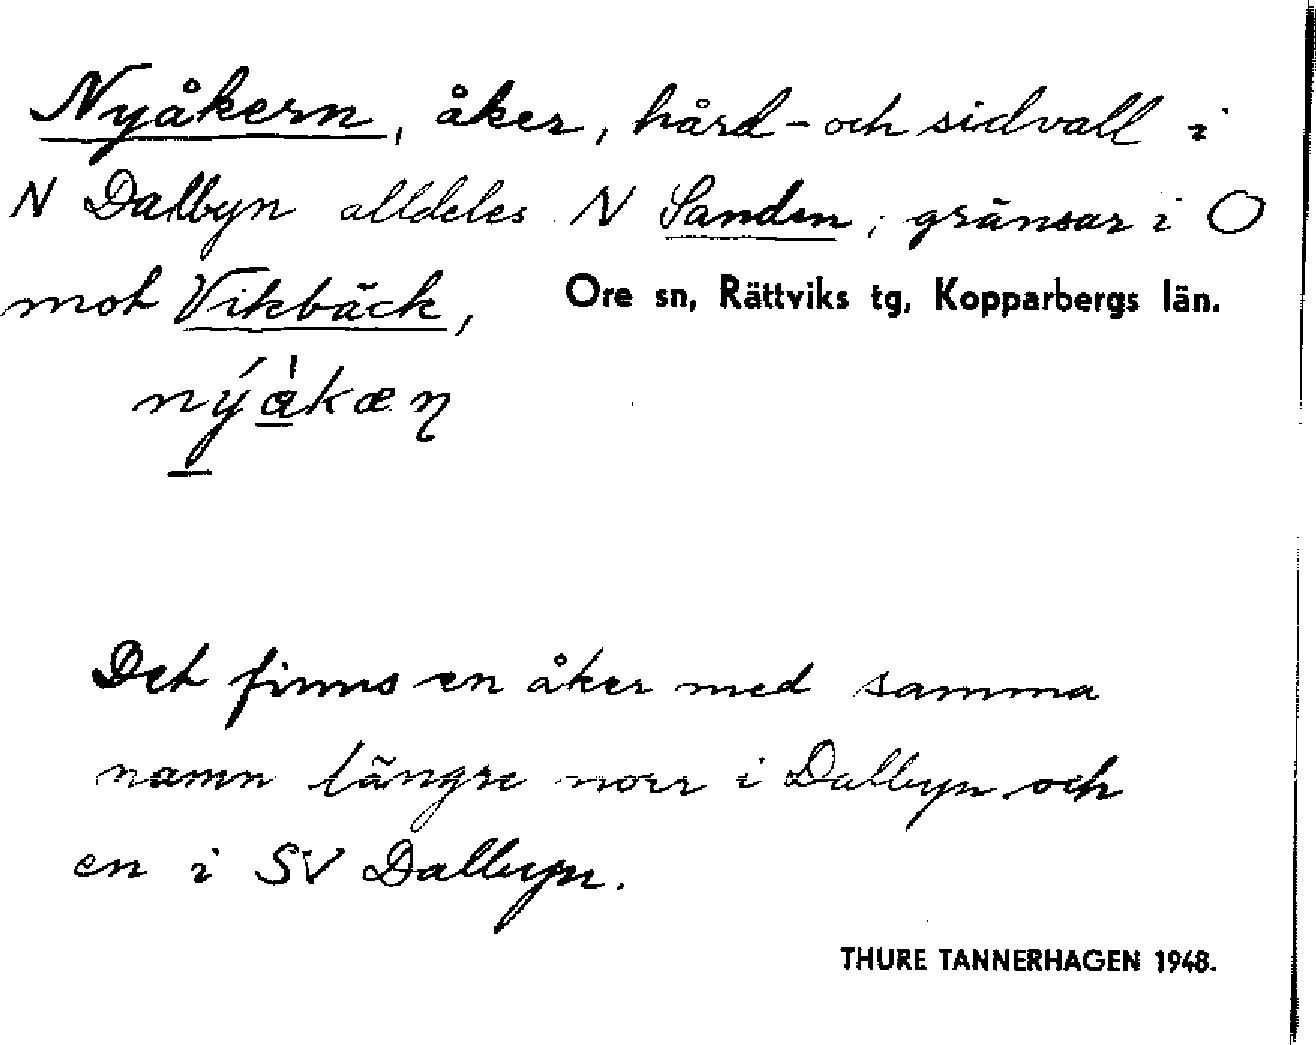 Nyåkern, åker, hård- och sidvall i
N Dalbyn alldeles N Sanden; gränsar i O
mot Vikbäck, Ore sn, Rättviks tg, Kopparbergs län.
nýàkæn̥
Det finns en åker med samma
namn längre norr i Dalbyn och
en i SV Dalbyn.
THURE TANNERHAGEN 1948.